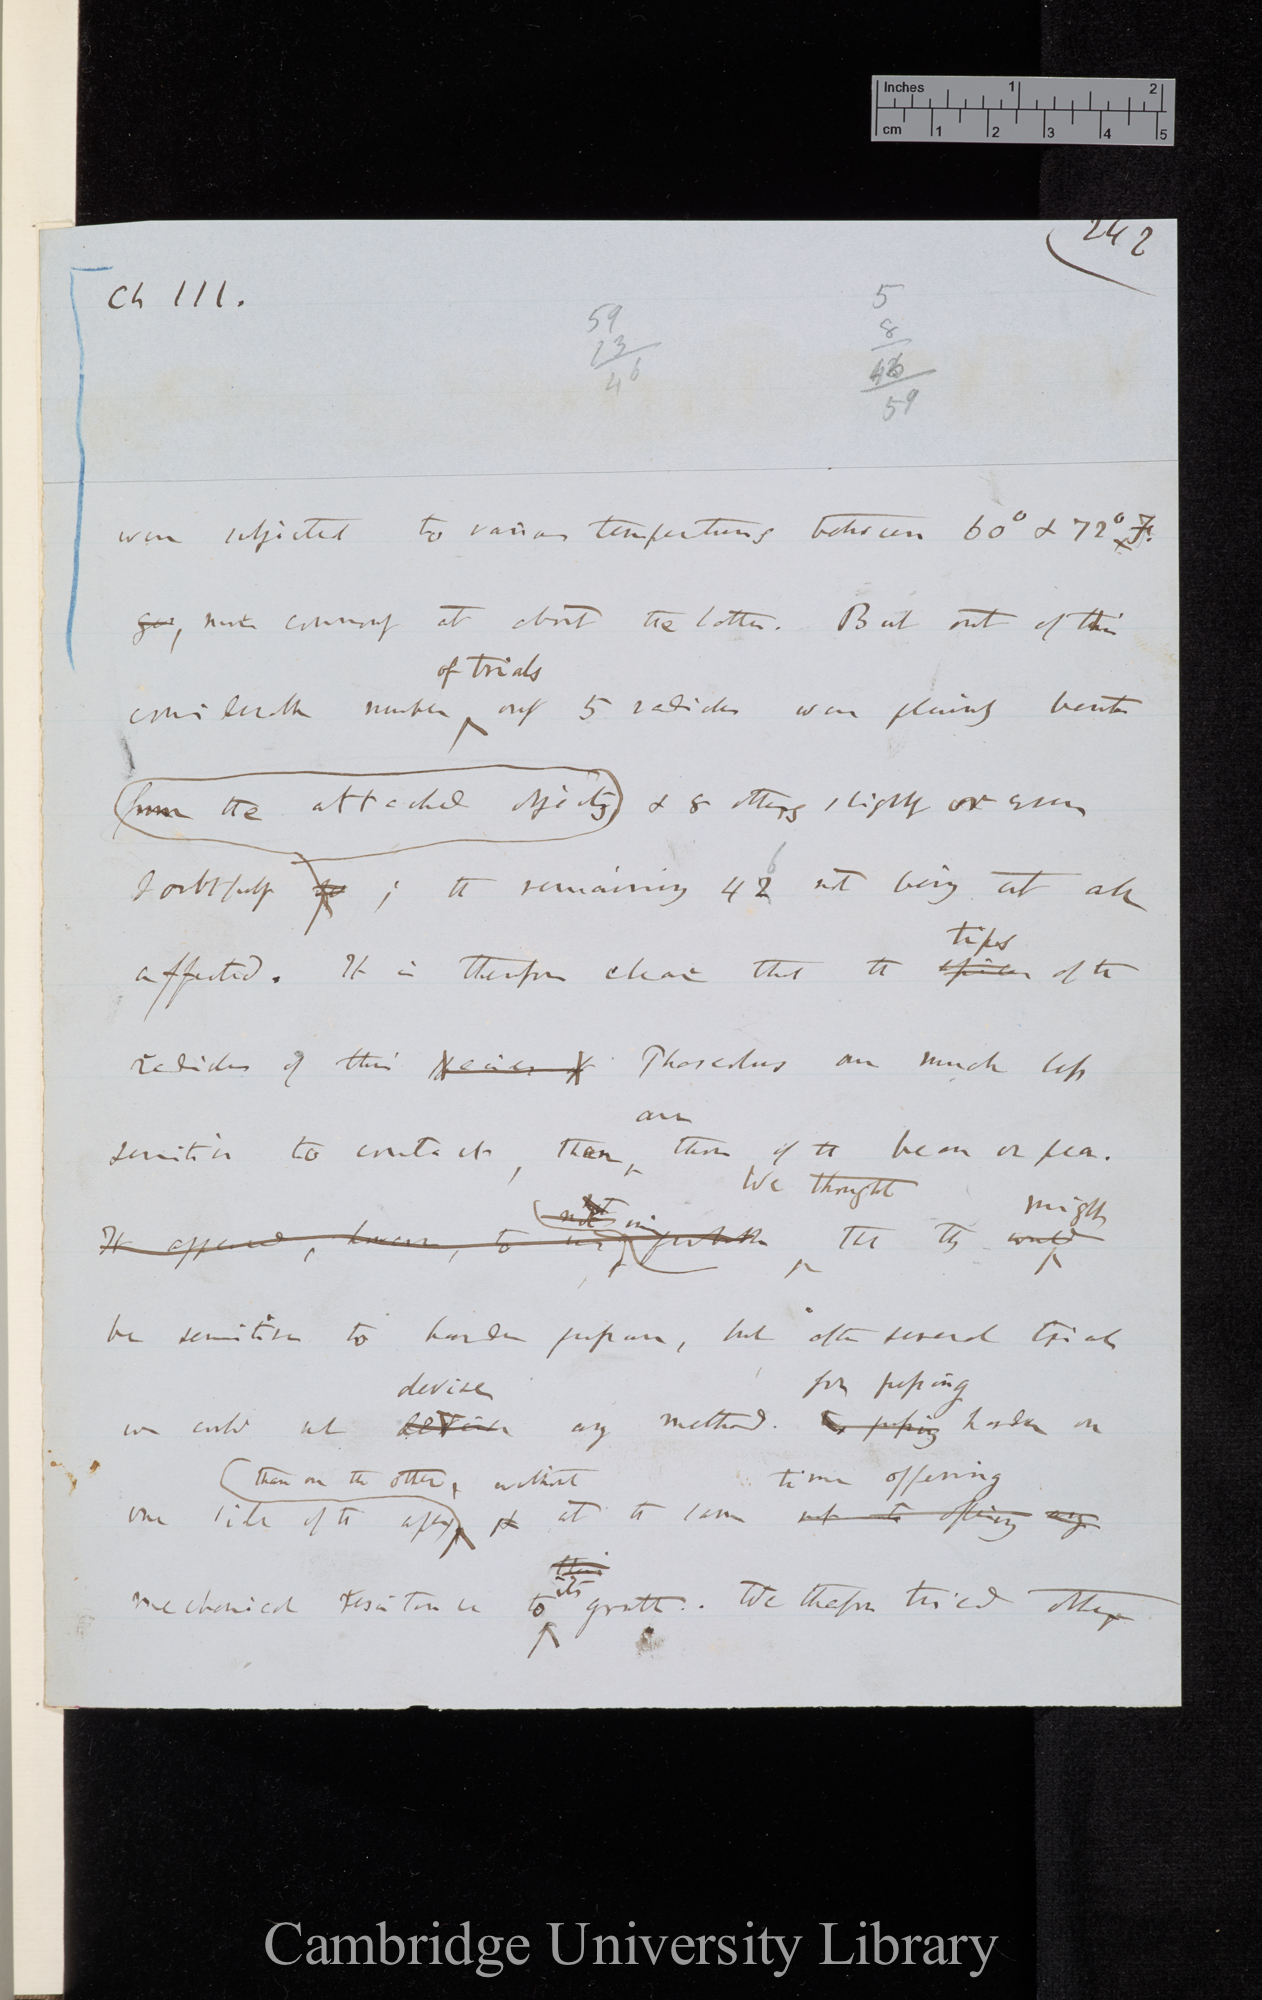 Inches 1 2
cm 1 2 3 4 5
242
Ch III.
59
23
46
5
8
46
59
were subjected to various temperatures between 60° & 72° F.
more commonly at about the latter. But out of this
of trials
considerable number only 5 radicles were plainly bent
from the attached objects & 8 others slightly or even
6
doubtfully so ; the remaining 42 not being at all
tips
affected. It is therefore clear that the apices of the
radicles of this species of Phaseolus are much less
are
sensitive to contact, than, those of the bean or pea.
We thought
not im
might
It appeared, however, to us probable that they would
be sensitive to harder pressure, but after several trials
devise
for pressing
we could not devise any method to pressing harder on
than on the other, without
time offering
one side of the apex at the same not to offering any
this
its
mechanical resistance to growth. We therefore tried other
Cambridge University Library